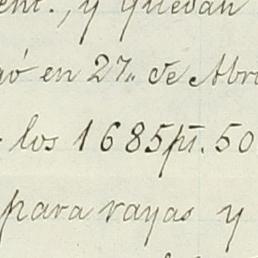 ent., y quedan
gó en 27,, de Abr
los 1685 pts. 50
para rayas y